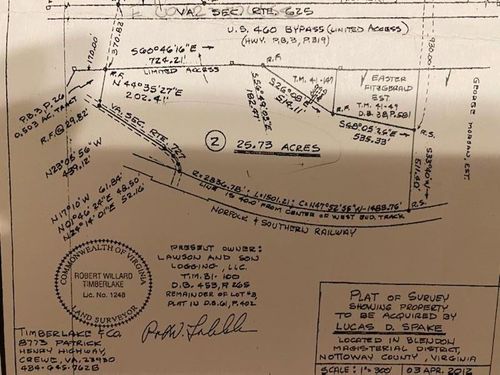 VA. SEC. RTE. 625
U.S. 460 BYPASS (LIMITED ACCESS)
(HWY. P.B. 3, P. 319)
370.82
170.00
930.00
S60°46'16"E
724.21'
LIMITED ACCESS
R.F.
R.F.
N44°35'27"E
202.41'
P.B. 3, P. 26
0.503 AC. TRACT
R.F. @ 29.82'
VA. SEC. RTE. 727
S26°08'
514.11'
T.M. 41-49
R.F.
EASTER
FITZGERALD
EST.
T.M. 41-49
D.B. 38, P. 581
S60°05'36"E
535.33'
R.S.
GEORGE MORGAN, EST.
517.50'
2
25.73 ACRES
N23°05'56"W
439.12'
N17°10'W 61.84'
N01°46'24"E 48.50'
N24°14'01"E 52.16'
R=2836.78' L=1501.21' C=N47°52'35"W-1488.76'
LINE IS 40.0' FROM CENTER OF WEST BND. TRACK
R.S.
NORFOLK & SOUTHERN RAILWAY
COMMONWEALTH OF VIRGINIA
ROBERT WILLARD
TIMBERLAKE
Lic. No. 1248
LAND SURVEYOR
PRESENT OWNER:
LAWSON AND SON
LOGGING, LLC.
T.M. 31-100
D.B. 453, P. 265
REMAINDER OF LOT #3,
PLAT IN D.B. 61, P. 402
TIMBERLAKE & CO.
8773 PATRICK
HENRY HIGHWAY,
CREWE, VA. 23930
434-645-7628
PLAT OF SURVEY
SHOWING PROPERTY
TO BE ACQUIRED BY
LUCAS D. SPAKE
LOCATED IN BLENDON
MAGISTERIAL DISTRICT,
NOTTOWAY COUNTY, VIRGINIA
SCALE: 1"=300'
03 APR. 2012